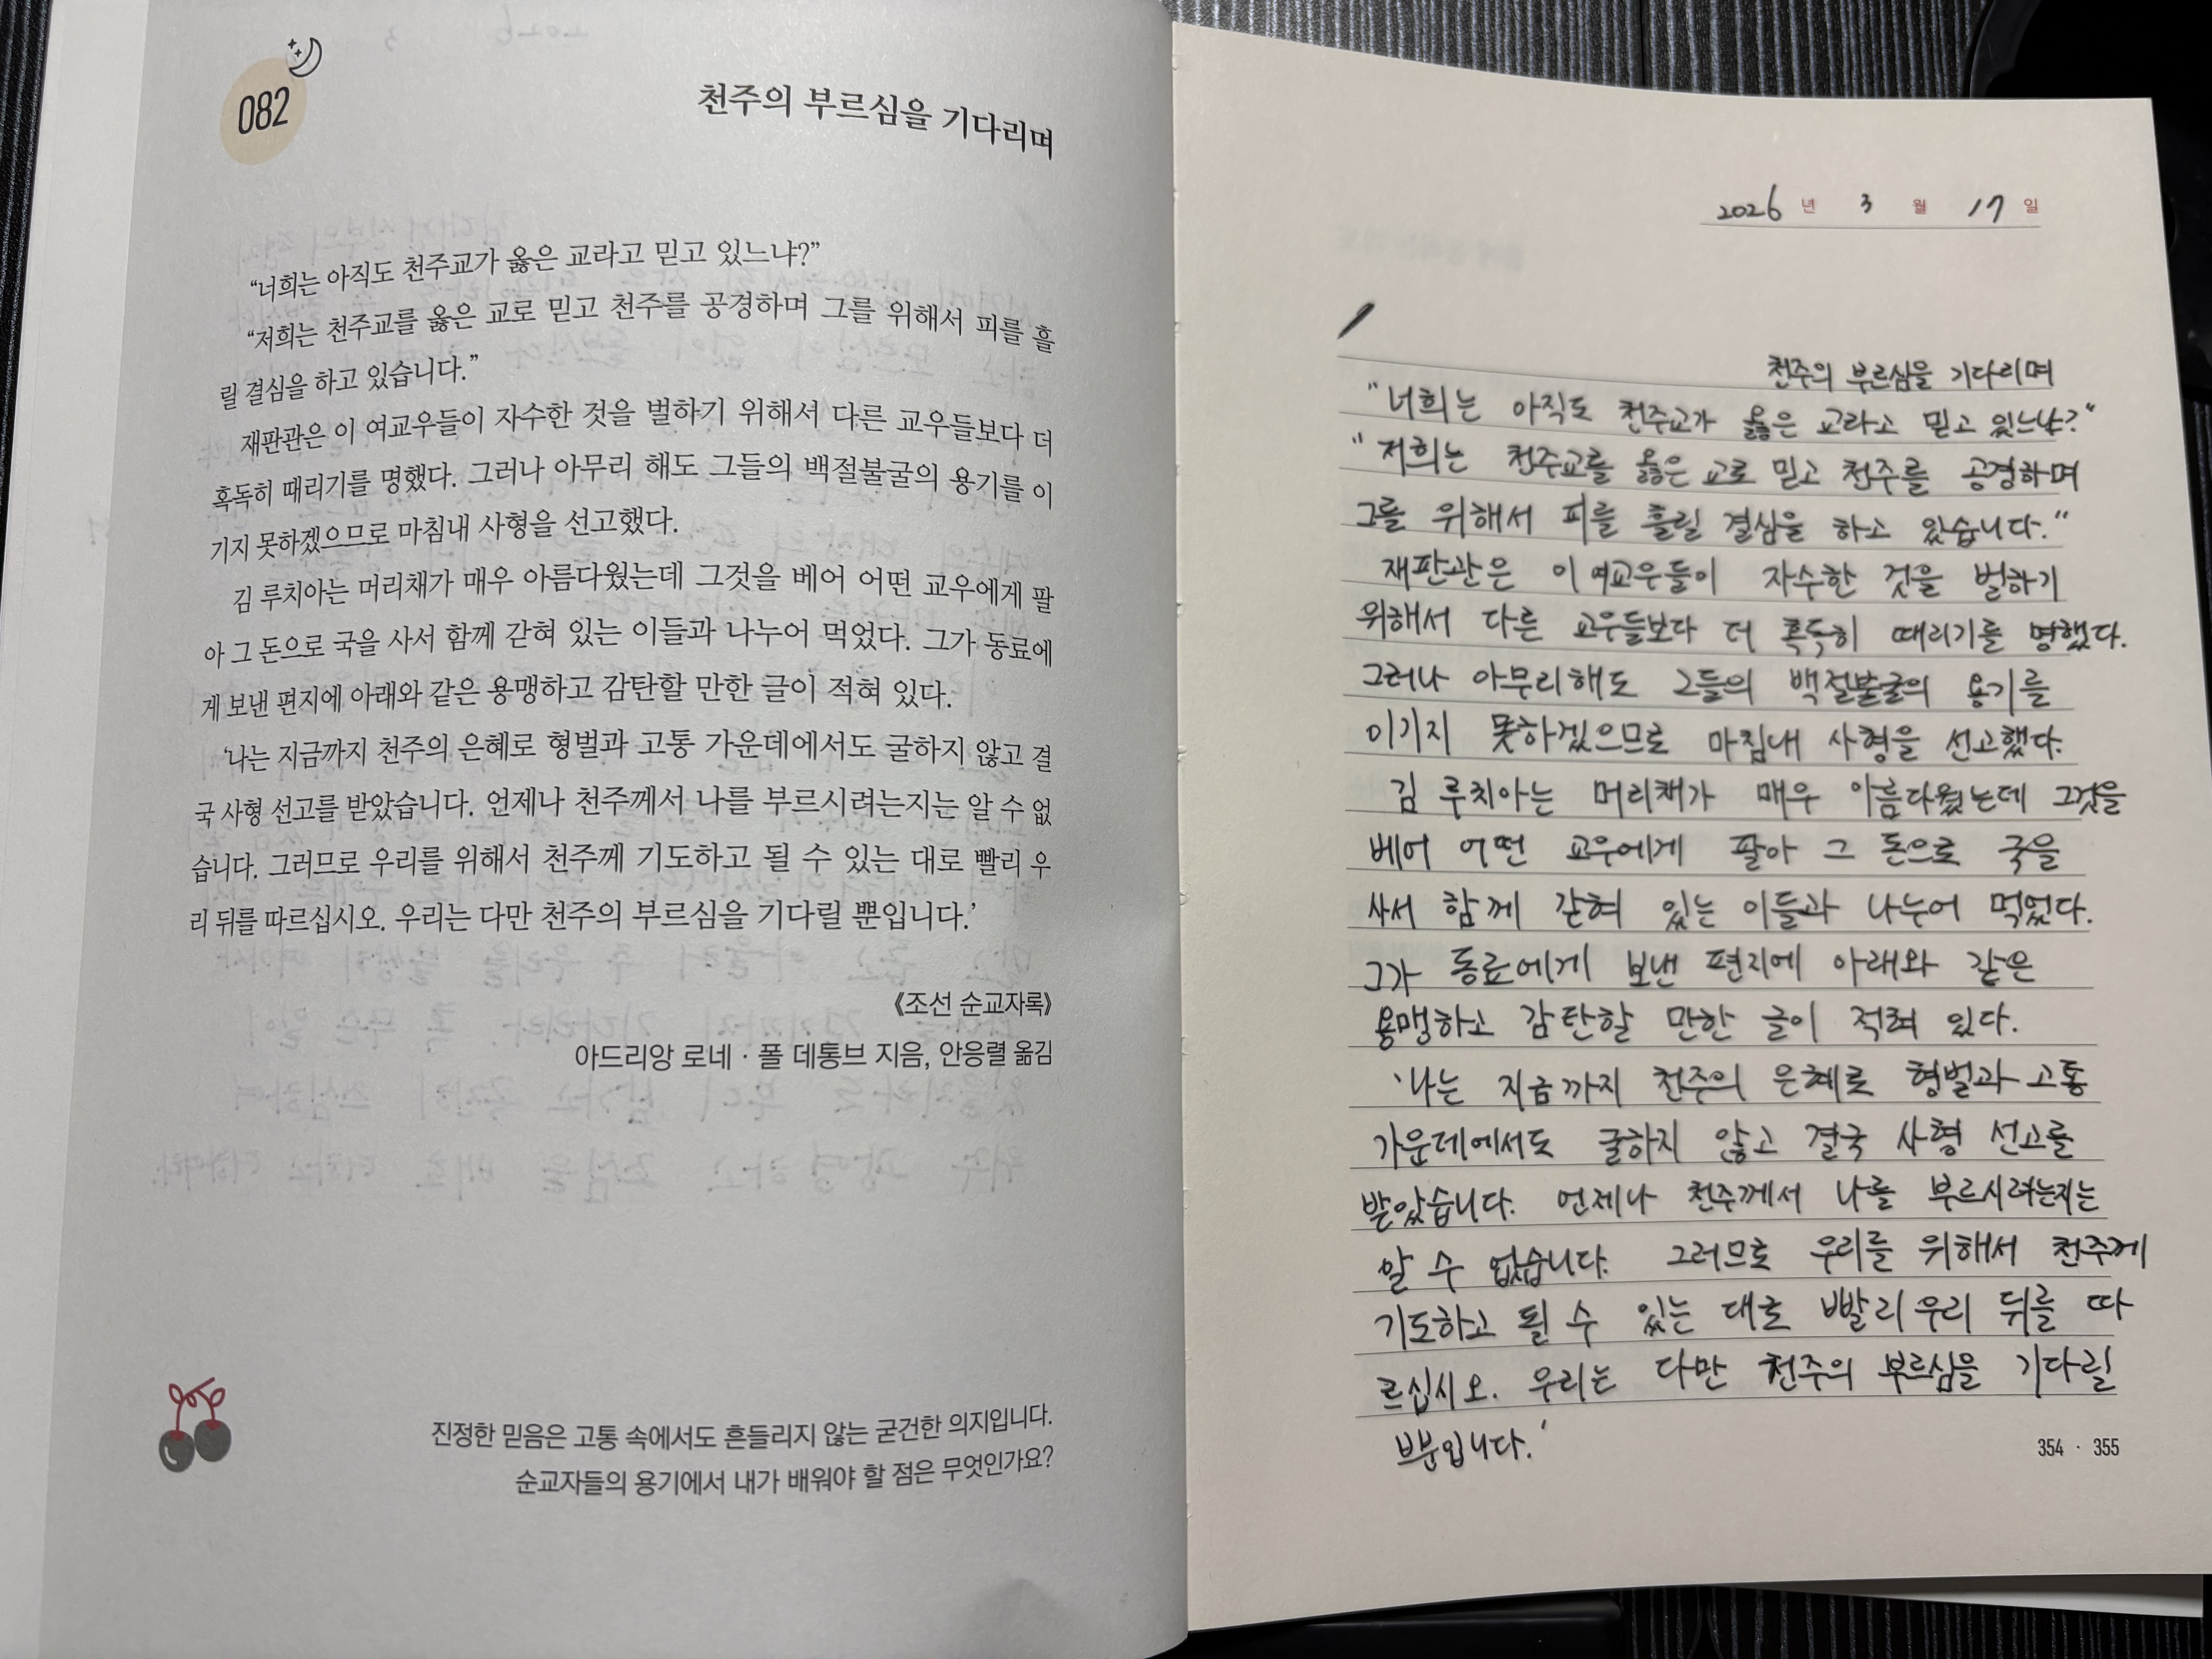 082
천주의 부르심을 기다리며
“너희는 아직도 천주교가 옳은 교라고 믿고 있느냐?”
“저희는 천주교를 옳은 교로 믿고 천주를 공경하며 그를 위해서 피를 흘
릴 결심을 하고 있습니다.”
재판관은 이 여교우들이 자수한 것을 벌하기 위해서 다른 교우들보다 더
혹독히 때리기를 명했다. 그러나 아무리 해도 그들의 백절불굴의 용기를 이
기지 못하겠으므로 마침내 사형을 선고했다.
김 루치아는 머리채가 매우 아름다웠는데 그것을 베어 어떤 교우에게 팔
아 그 돈으로 국을 사서 함께 갇혀 있는 이들과 나누어 먹었다. 그가 동료에
게 보낸 편지에 아래와 같은 용맹하고 감탄할 만한 글이 적혀 있다.
‘나는 지금까지 천주의 은혜로 형벌과 고통 가운데에서도 굴하지 않고 결
국 사형 선고를 받았습니다. 언제나 천주께서 나를 부르시려는지는 알 수 없
습니다. 그러므로 우리를 위해서 천주께 기도하고 될 수 있는 대로 빨리 우
리 뒤를 따르십시오. 우리는 다만 천주의 부르심을 기다릴 뿐입니다.’
《조선 순교자록》
아드리앙 로네 · 폴 데통브 지음, 안응렬 옮김
진정한 믿음은 고통 속에서도 흔들리지 않는 굳건한 의지입니다.
순교자들의 용기에서 내가 배워야 할 점은 무엇인가요?
2026 년 3 월 17 일
천주의 부르심을 기다리며
“너희는 아직도 천주교가 옳은 교라고 믿고 있느냐?”
“저희는 천주교를 옳은 교로 믿고 천주를 공경하며
그를 위해서 피를 흘릴 결심을 하고 있습니다.”
재판관은 이 여교우들이 자수한 것을 벌하기
위해서 다른 교우들보다 더 혹독히 때리기를 명했다.
그러나 아무리해도 그들의 백절불굴의 용기를
이기지 못하겠으므로 마침내 사형을 선고했다.
김 루치아는 머리채가 매우 아름다웠는데 그것을
베어 어떤 교우에게 팔아 그 돈으로 국을
사서 함께 갇혀 있는 이들과 나누어 먹었다.
그가 동료에게 보낸 편지에 아래와 같은
용맹하고 감탄할 만한 글이 적혀 있다.
‘나는 지금까지 천주의 은혜로 형벌과 고통
가운데에서도 굴하지 않고 결국 사형 선고를
받았습니다. 언제나 천주께서 나를 부르시려는지는
알 수 없습니다. 그러므로 우리를 위해서 천주께
기도하고 될 수 있는 대로 빨리 우리 뒤를 따
르십시오. 우리는 다만 천주의 부르심을 기다릴
뿐입니다.’
354 · 355